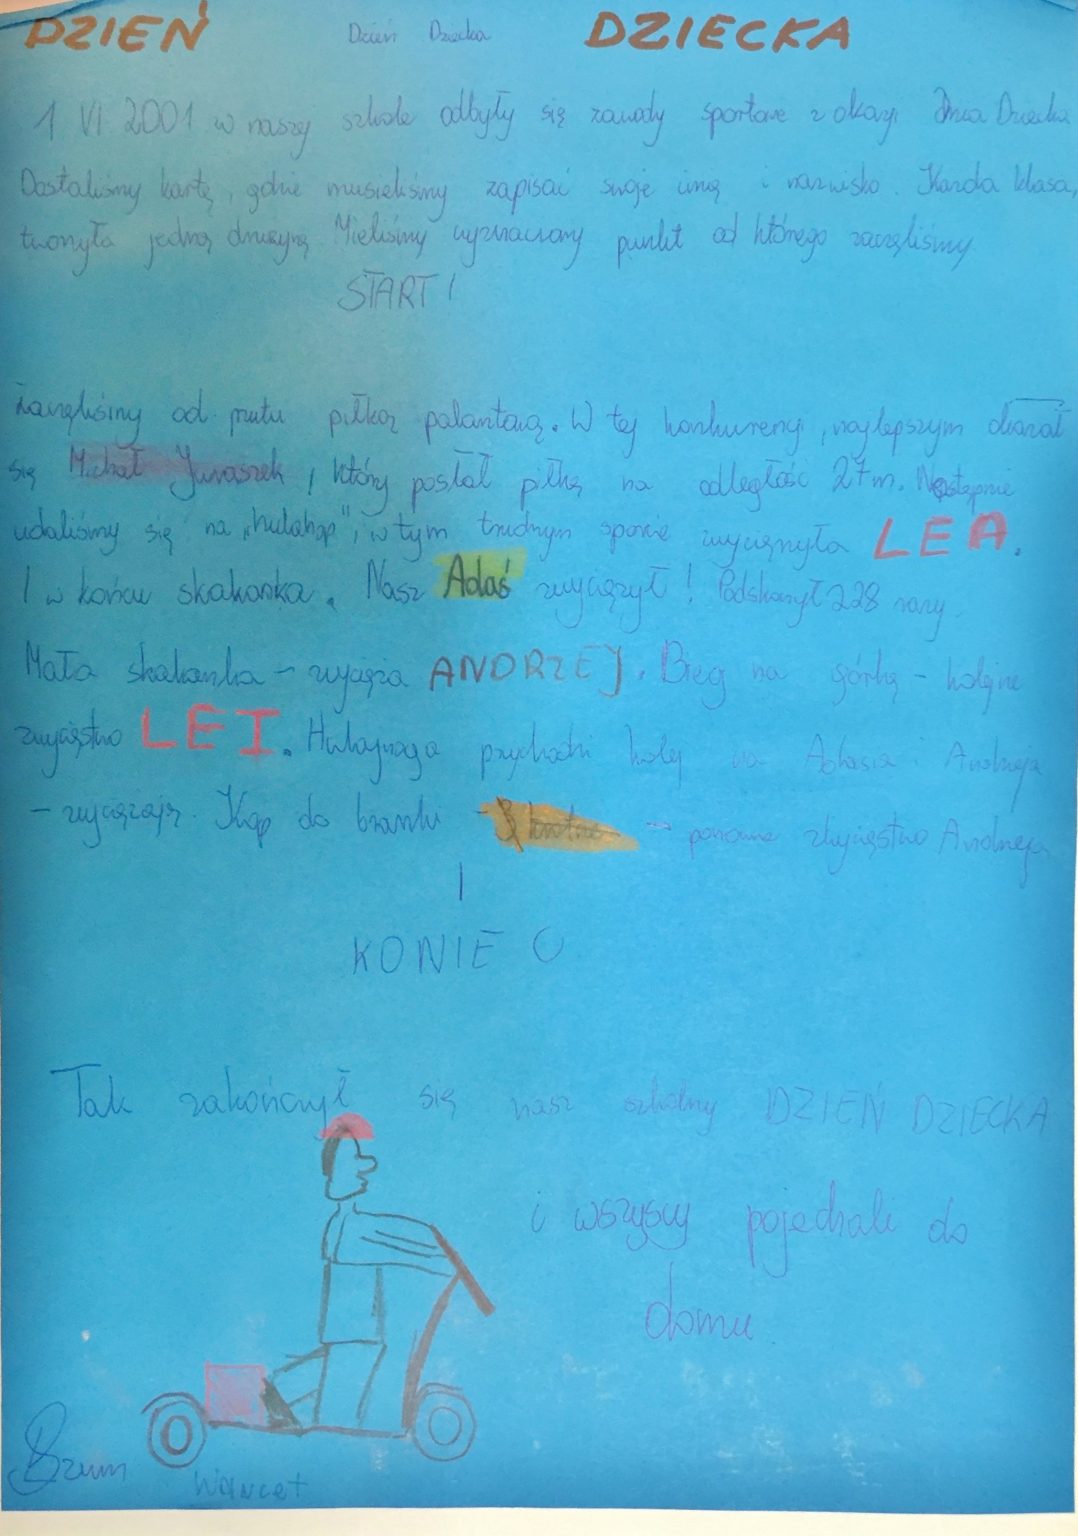 DZIEŃ Dzień Dziecka DZIECKA
1 VI 2001 w naszej szkole odbyły się zawody sportowe z okazji Dnia Dziecka
Dostaliśmy kartę, gdzie musieliśmy zapisać swoje imię i nazwisko. Każda klasa,
tworzyła jedną drużynę Mieliśmy wyznaczony punkt od którego zaczęliśmy.
START!
Zaczęliśmy od rzutu piłką palantową. W tej konkurencji, najlepszym okazał
się Michał Juraszek, który posłał piłkę na odległość 27m. Następnie
udaliśmy się na „hulahop", w tym trudnym sporcie wyciągnęła LEA.
I w końcu skakanka. Nasz Adaś zwyciężył! Podskoczył 228 razy.
Mała skakanka – zwycięża ANDRZEJ. Bieg na górkę – kolejne
zwycięstwo LEI. Hulajnoga przychodzi kolej na Adasia i Andrzeja
– zwyciężają. Kop do bramki – – ponowne zwycięstwo Andrzeja
KONIEC
Tak zakończył się nasz szkolny DZIEŃ DZIECKA
i wszyscy pojechali do
domu